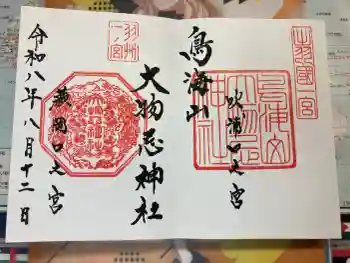 出羽國一宮
鳥海山
吹浦口之宮
鳥海山
大物忌
神社
羽州
一ノ宮
大物忌神社
蕨岡口之宮
令和八年八月十二日